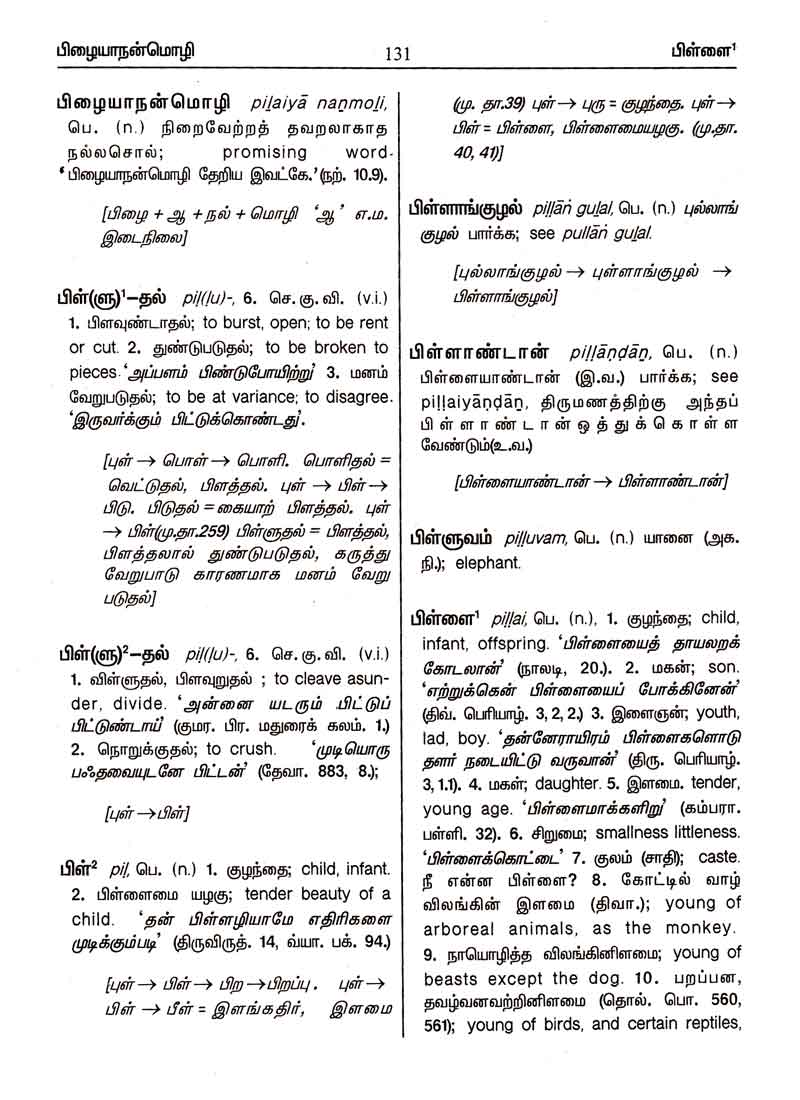 பிழையாநன்மொழி 131 பிள்ளை¹
பிழையாநன்மொழி piḻaiyā naṉmoḻi,
பெ. (n.) நிறைவேற்றத் தவறலாகாத
நல்லசொல்; promising word-
‘பிழையாநன்மொழி தேறிய இவட்கே.’ (நற். 10.9).
[பிழை + ஆ + நல் + மொழி ‘ஆ’ எ.ம.
இடைநிலை]
பிள்(ளு)¹–தல் piḷ(ḷu)-, 6. செ.கு.வி. (v.i.)
1. பிளவுண்டாதல்; to burst, open; to be rent
or cut. 2. துண்டுபடுதல்; to be broken to
pieces. ‘அப்பளம் பிண்டுபோயிற்று’ 3. மனம்
வேறுபடுதல்; to be at variance; to disagree.
‘இருவர்க்கும் பிட்டுக்கொண்டது’.
[புள் → பொள் → பொளி. பொளிதல் =
வெட்டுதல், பிளத்தல். புள் → பிள் →
பிடு. பிடுதல் = கையாற் பிளத்தல். புள்
→ பிள்(மு.தா.259) பிள்ளுதல் = பிளத்தல்,
பிளத்தலால் துண்டுபடுதல், கருத்து
வேறுபாடு காரணமாக மனம் வேறு
படுதல்]
பிள்(ளு)²–தல் piḷ(ḷu)-, 6. செ.கு.வி. (v.i.)
1. விள்ளுதல், பிளவுறுதல் ; to cleave asun-
der, divide. ‘அன்னை யடரும் பிட்டுப்
பிட்டுண்டாய்’ (குமர. பிர. மதுரைக் கலம். 1.)
2. நொறுக்குதல்; to crush. ‘முடியொரு
பஃதவையுடனே பிட்டன்’ (தேவா. 883, 8.);
[புள் → பிள்]
பிள்² piḷ, பெ. (n.) 1. குழந்தை; child, infant.
2. பிள்ளைமை யழகு; tender beauty of a
child. ‘தன் பிள்ளழியாமே எதிரிகளை
முடிக்கும்படி’ (திருவிருத். 14, வ்யா. பக். 94.)
[புள் → பிள் → பிற → பிறப்பு. புள் →
பிள் → பீள் = இளங்கதிர், இளமை
(மு. தா.39) புள் → புரு = குழந்தை. புள் →
பிள் = பிள்ளை, பிள்ளைமையழகு. (மு.தா.
40, 41)]
பிள்ளாங்குழல் piḷḷāṅ guḻal, பெ. (n.) புல்லாங்
குழல் பார்க்க; see pullāṅ guḻal.
[புல்லாங்குழல் → புள்ளாங்குழல் →
பிள்ளாங்குழல்]
பிள்ளாண்டான் piḷḷāṇḍāṉ, பெ. (n.)
பிள்ளையாண்டான் (இ.வ.) பார்க்க; see
piḷḷaiyāṇḍāṉ, திருமணத்திற்கு அந்தப்
பிள்ளாண்டான்ஒத்துக்கொள்ள
வேண்டும்(உ.வ.)
[பிள்ளையாண்டான் → பிள்ளாண்டான்]
பிள்ளுவம் piḷḷuvam, பெ. (n.) யானை (அக.
நி.); elephant.
பிள்ளை¹ piḷḷai, பெ. (n.), 1. குழந்தை; child,
infant, offspring. ‘பிள்ளையைத் தாயலறக்
கோடலான்’ (நாலடி, 20.). 2. மகன்; son.
‘எற்றுக்கென் பிள்ளையைப் போக்கினேன்’
(திவ். பெரியாழ். 3, 2, 2.) 3. இளைஞன்; youth,
lad, boy. ‘தன்னேராயிரம் பிள்ளைகளொடு
தளர் நடையிட்டு வருவான்’ (திரு. பெரியாழ்.
3, 1.1). 4. மகள்; daughter. 5. இளமை. tender,
young age. ‘பிள்ளைமாக்களிறு’ (கம்பரா.
பள்ளி. 32). 6. சிறுமை; smallness littleness.
‘பிள்ளைக்கொட்டை’ 7. குலம் (சாதி); caste.
நீ என்ன பிள்ளை? 8. கோட்டில் வாழ்
விலங்கின் இளமை (திவா.); young of
arboreal animals, as the monkey.
9. நாயொழித்த விலங்கினிளமை; young of
beasts except the dog. 10. பறப்பன,
தவழ்வனவற்றினிளமை (தொல். பொ. 560,
561); young of birds, and certain reptiles,